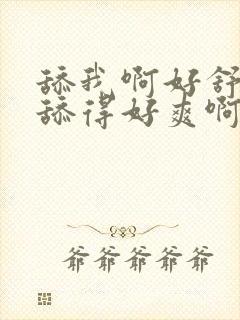 舔我啊好舒
舔得好爽啊
爷爷爷爷爷